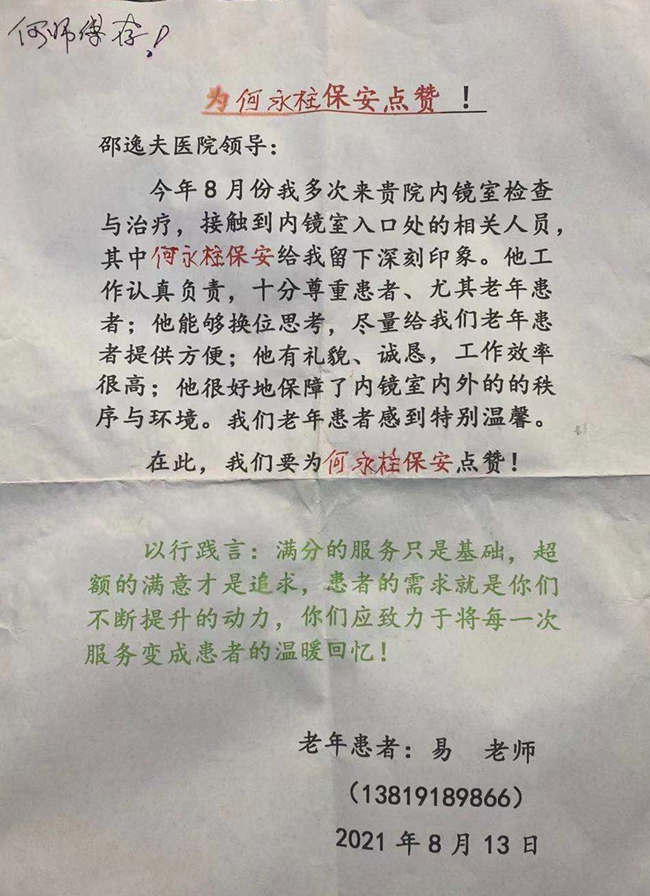 何师保存!
为何永柱保安点赞!
邵逸夫医院领导:
今年8月份我多次来贵院内镜室检查
与治疗,接触到内镜室入口处的相关人员,
其中何永柱保安给我留下深刻印象。他工
作认真负责,十分尊重患者、尤其老年患
者;他能够换位思考,尽量给我们老年患
者提供方便;他有礼貌、诚恳,工作效率
很高;他很好地保障了内镜室内外的的秩
序与环境。我们老年患者感到特别温馨。
在此,我们要为何永柱保安点赞!
以行践言:满分的服务只是基础,超
额的满意才是追求,患者的需求就是你们
不断提升的动力,你们应致力于将每一次
服务变成患者的温暖回忆!
老年患者:易 老师
(13819189866)
2021年8月13日